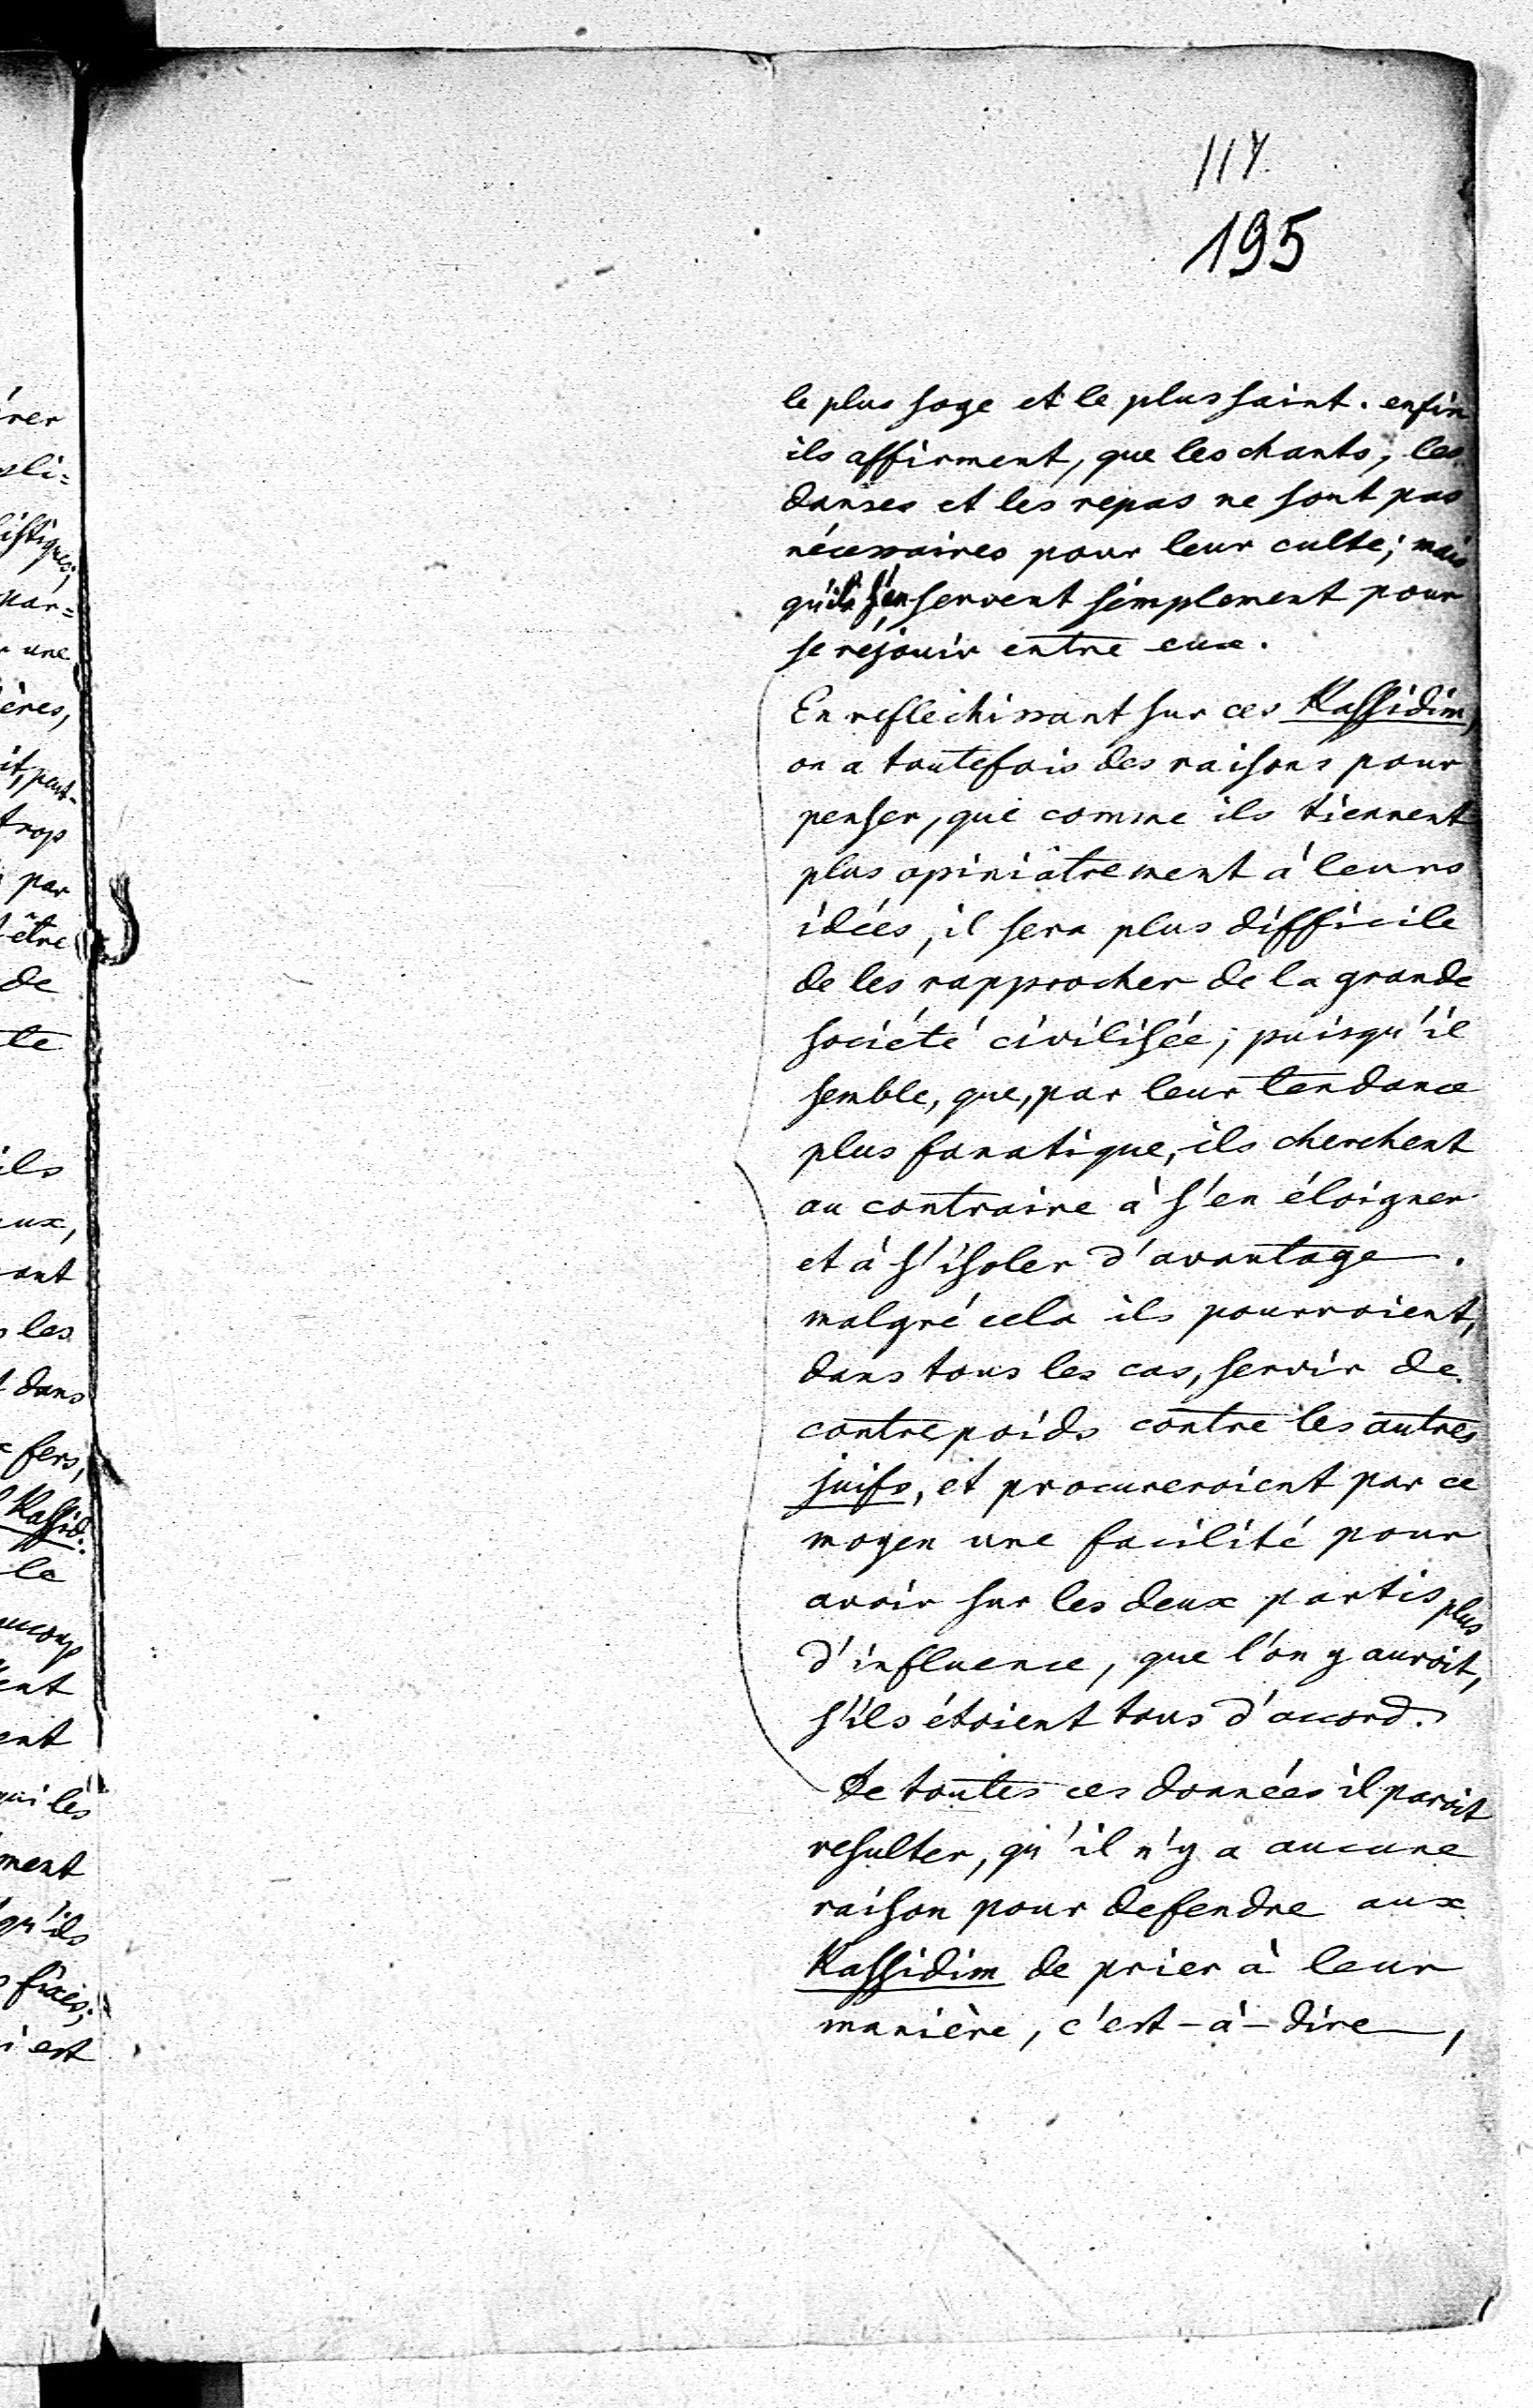 117.
195
le plus sage et le plus saint. enfin
ils affirment, que les chants, les
danses et les repas ne sont pas
nécessaires pour leur culte; mais
qu'ils s'en servent simplement pour
se réjouir entre eux.
En reflechissant sur ces Kassidim,
on a toutefois des raisons pour
penser, que comme ils tiennent
plus opiniâtrement à leurs
idées, il sera plus difficile
de les rapprocher de la grande
société civilisée; puisqu'il
semble, que, par leur tendance
plus fanatique, ils cherchent
au contraire à s'en éloigner
et à s'isoler d'avantage.
malgré cela ils pourroient,
dans tous les cas, servir de
contrepoids contre les autres
juifs, et procureroient par ce
moyen une facilité pour
avoir sur les deux partis plus
d'influence, que l'on y auroit,
s'ils étoient tous d'accord.
De toutes ces données il paroit
resulter, qu'il n'y a aucune
raison pour defendre aux
Kassidim de prier à leur
manière, c'est-à-dire,